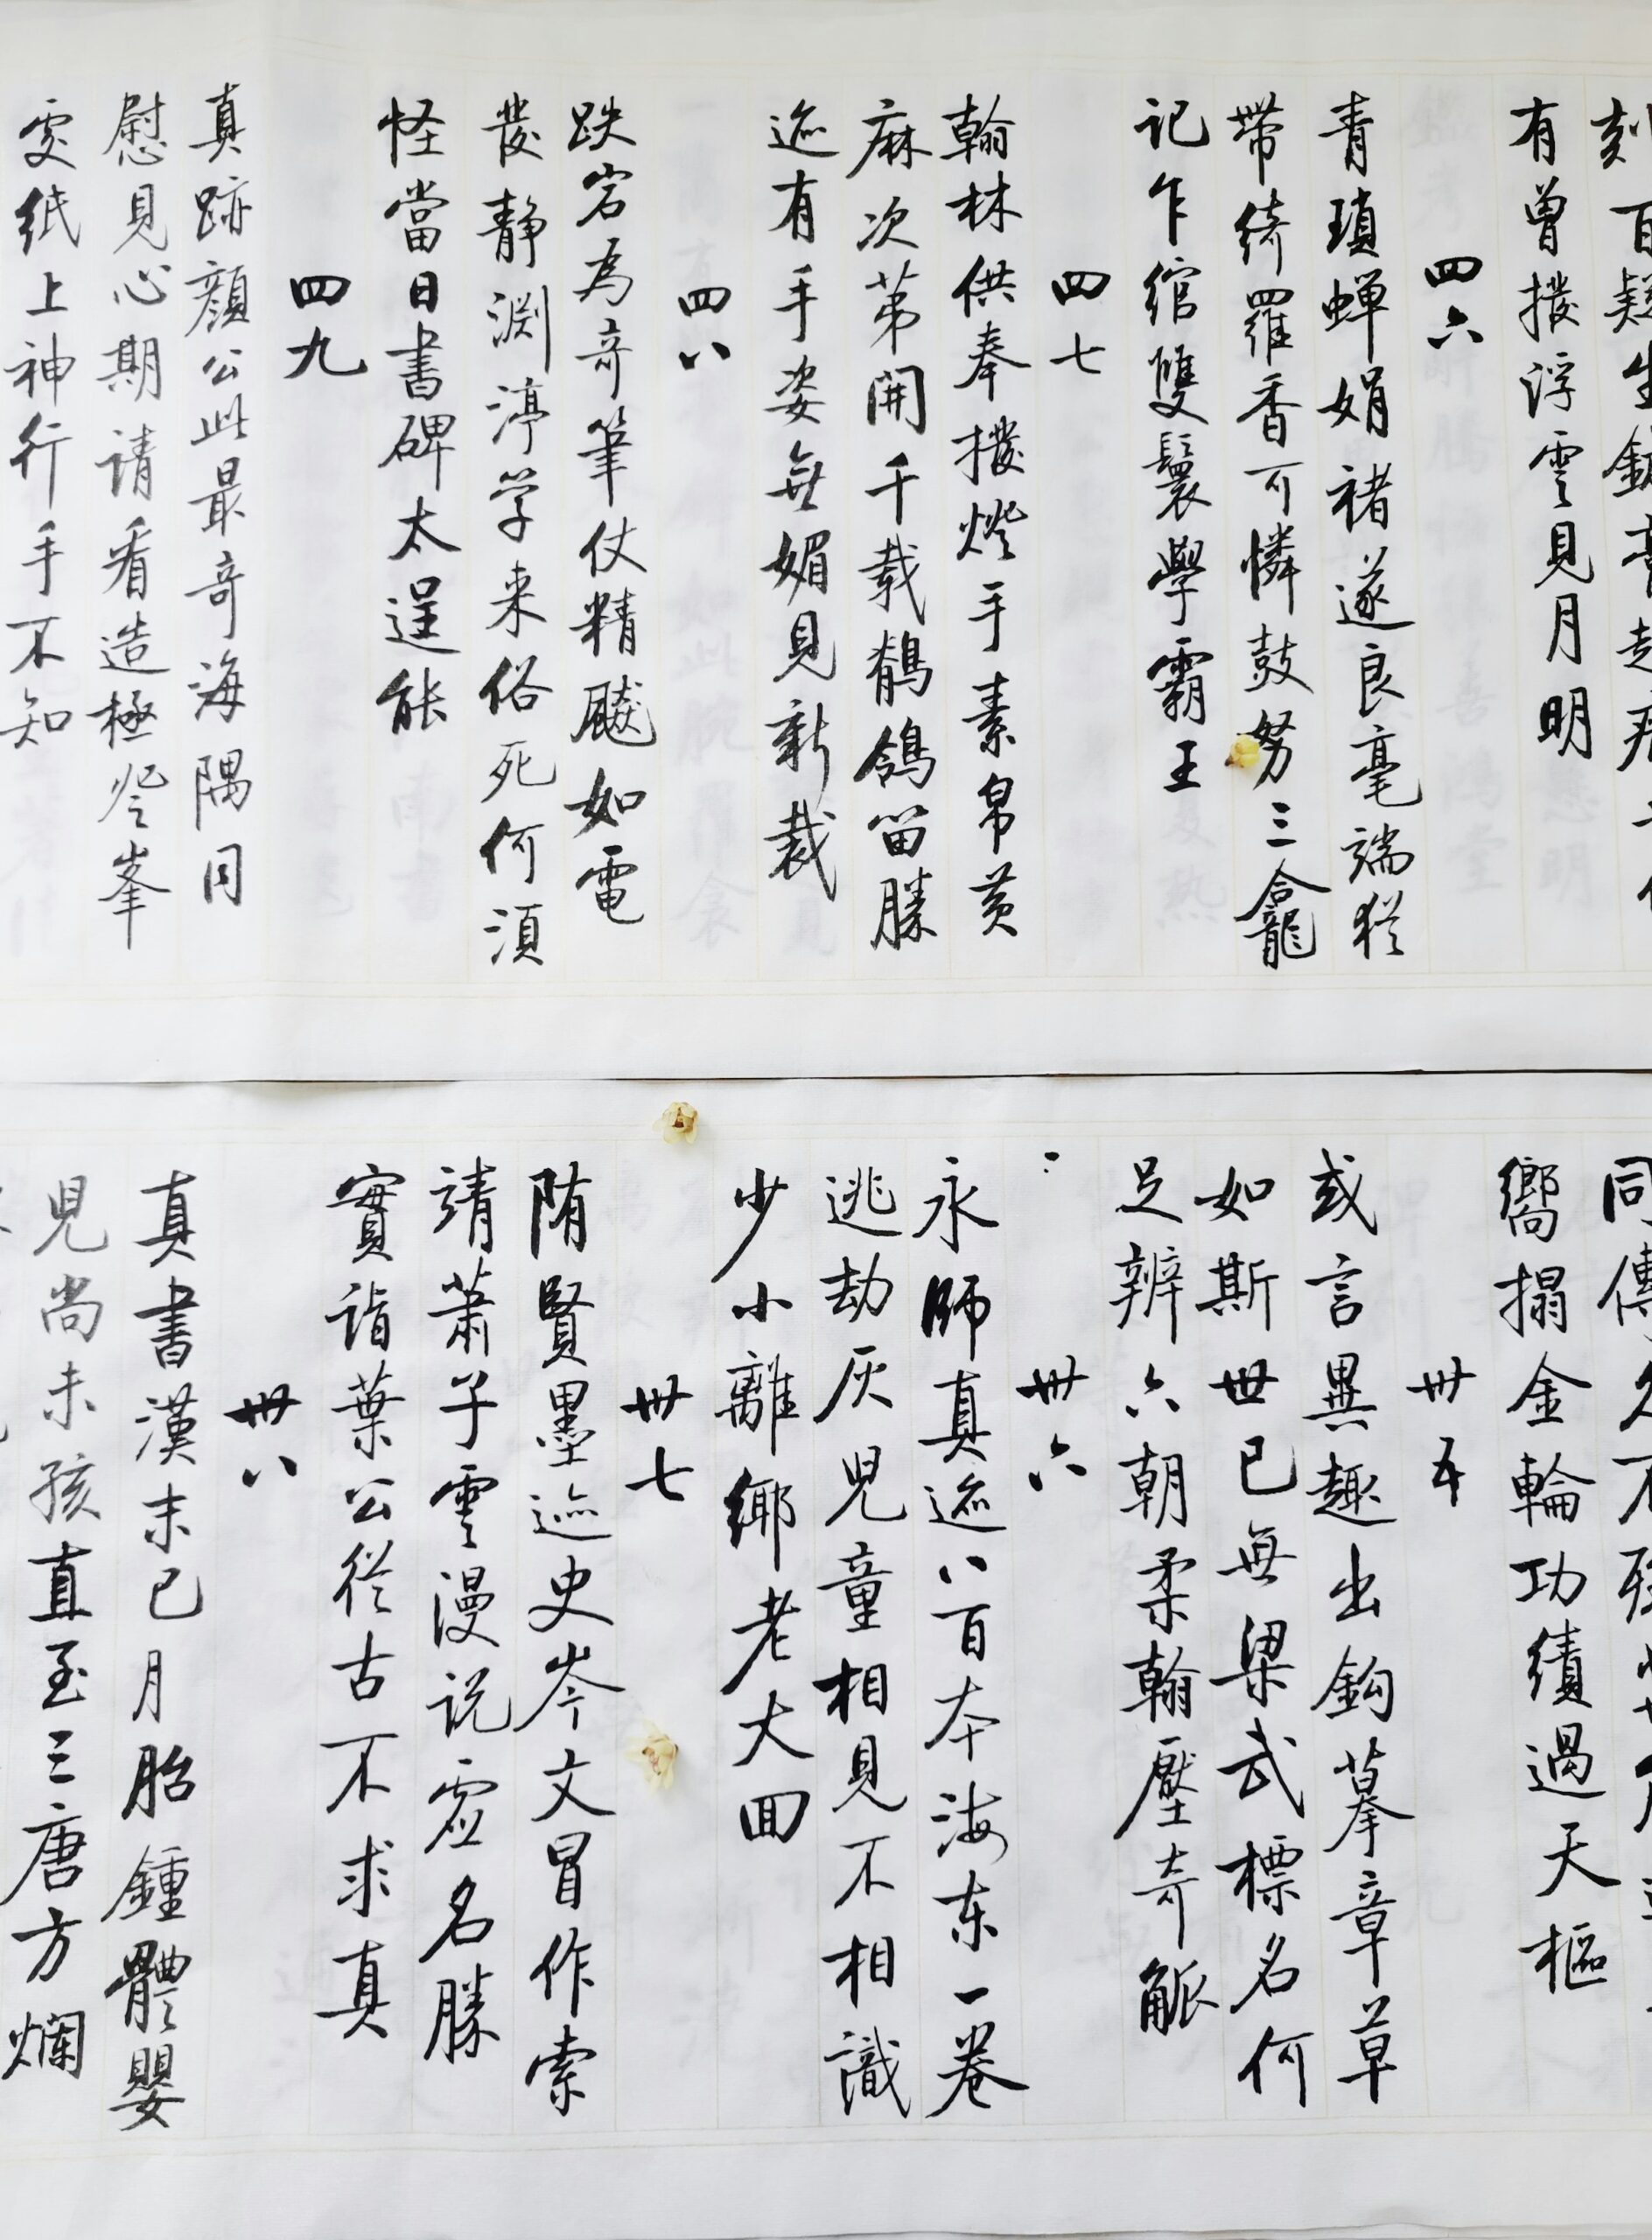 有曾撥浮雲見月明
四六
青瑣蟬娟褚遂良毫端猶
帶綺羅香可憐鼓努三龕
記乍綰雙鬟學霸王
四七
翰林供奉撥燈手素帛黃
麻次第開千載鶺鴒留勝
迹有手姿無媚見新裁
四八
跌宕為奇筆仗精飈如電
發静渊渟学来俗死何須
怪當日書碑太逞能
四九
真跡顔公此最奇海隅同
慰見心期请看造極登峯
處纸上神行手不知
嚮搨金輪功績過天樞
卅五
或言異趣出鈎摹章草
如斯世已無梁武標名何
足辨六朝柔翰壓奇觚
卅六
永師真迹八百本海东一卷
逃劫灰児童相見不相識
少小離鄉老大回
卅七
隋賢墨迹史岑文冒作索
靖萧子雲漫说虚名勝
實詣葉公從古不求真
卅八
真書漢末已月胎鍾體嬰
児尚未孩直至三唐方爛